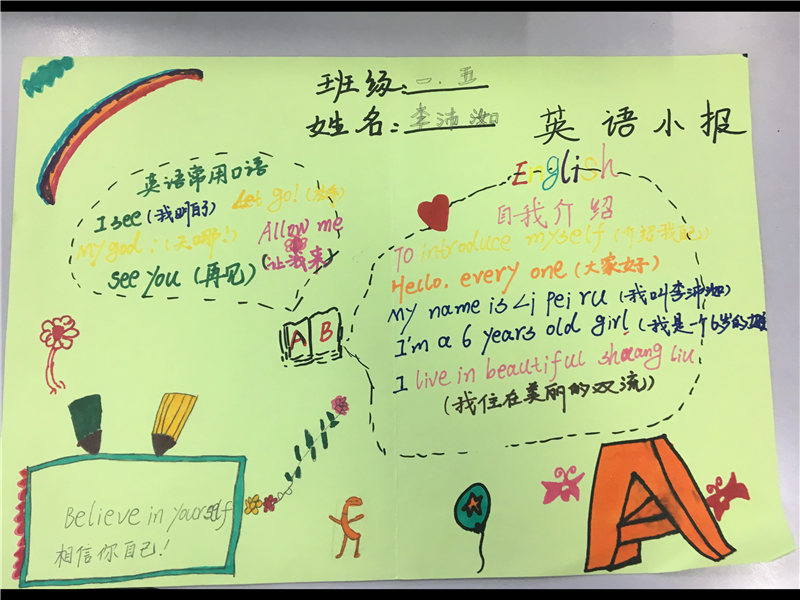 班级:一.五
姓名:李沛洳
英语小报
英语常用口语
I see (我明白了)
Let go! (放手)
My god! (天哪!)
Allow me
(让我来)
see you (再见)
English
自我介绍
To introduce myself (介绍我自己)
Hello. every one (大家好)
My name is Li pei ru (我叫李沛洳)
I'm a 6 years old girl (我是一个6岁的
I live in beautiful shuang liu
(我住在美丽的双流)
A B
Believe in yourself
相信你自己!
A